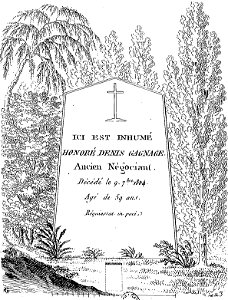 ICI EST INHUMÉ
HONORÉ DENIS GAGNAGE
Ancien Négociant.
Décédé le 9. 7bre 1824.
Agé de 59 ans.
Requiescat in pace.